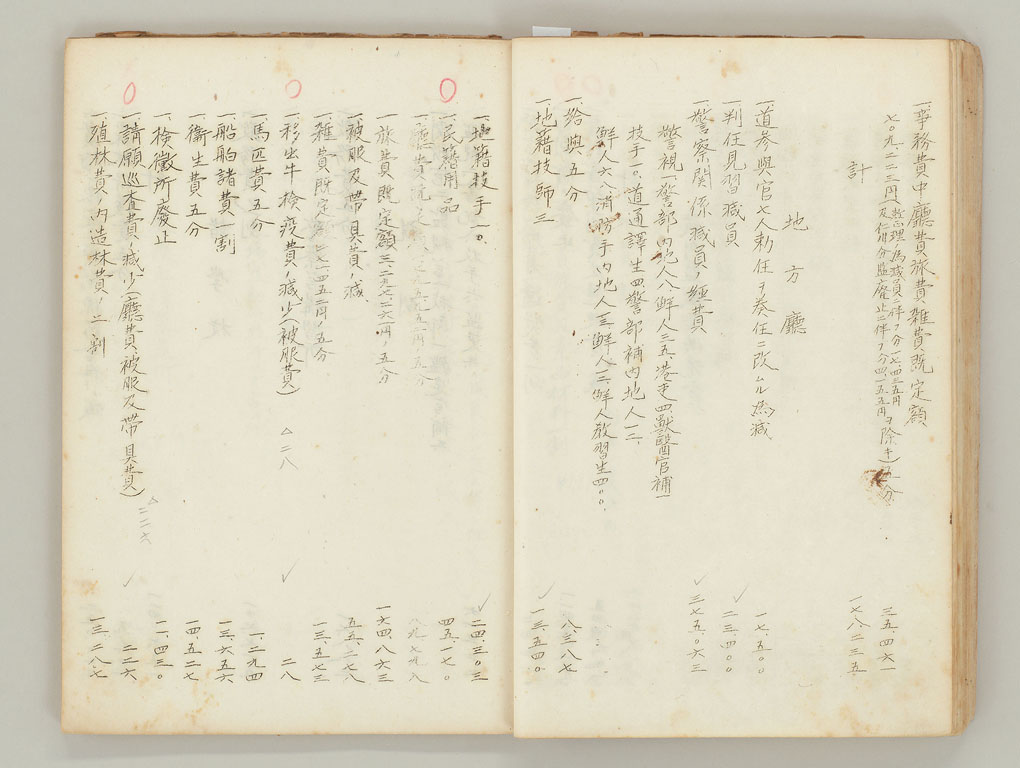 一、事務費中廳費旅費雜費既定額
七〇九、二二三円
整理ノ為減員ニ伴フ分一七、四三五円
及仁川分監廢止ニ伴フ分四、一五五円
ヲ除キ
五分
三五、四六一
計
一七八、二三五
地方廳
一、道參與官七人勅任ヲ奏任ニ改ムル為減
一七、五〇〇
一、判任見習職員
二三、四〇〇
一、警察關係職員ノ經費
三七五、〇六三
警視一、警部内地人八鮮人三五、港吏四獸醫官補一
技手一〇、道通譯生四警部補内地人一二、
鮮人六八消防手内地人三、鮮人三、鮮人教習生四〇〇、
一、給與五分
八、三八七
一、地籍技師三
一三、五四〇
一、地籍技手一〇
二四、三〇三
一、民籍用品
四五、一七〇
一、廳費既定
五分
八九、七九八
一、旅費既定額三、二九七、二六〇円ノ五分
一六四、八六三
一、被服及帶具費ノ減
五五、二七八
一、雜費既定額二七一、四五二円ノ五分
一三、五七三
一、移出牛檢疫費ノ減少(被服費)
△二八
二八
一、馬匹費五分
一、二九四
一、船舶諸費一割
一三、六五六
一、衞生費五分
一四、五二七
一、檢黴所廢止
一一、四三〇
一、請願巡査費ノ減少(廳費、被服及帶具費)
△二二六
二二六
一、殖林費ノ内造林費ノ二割
一三、二八七